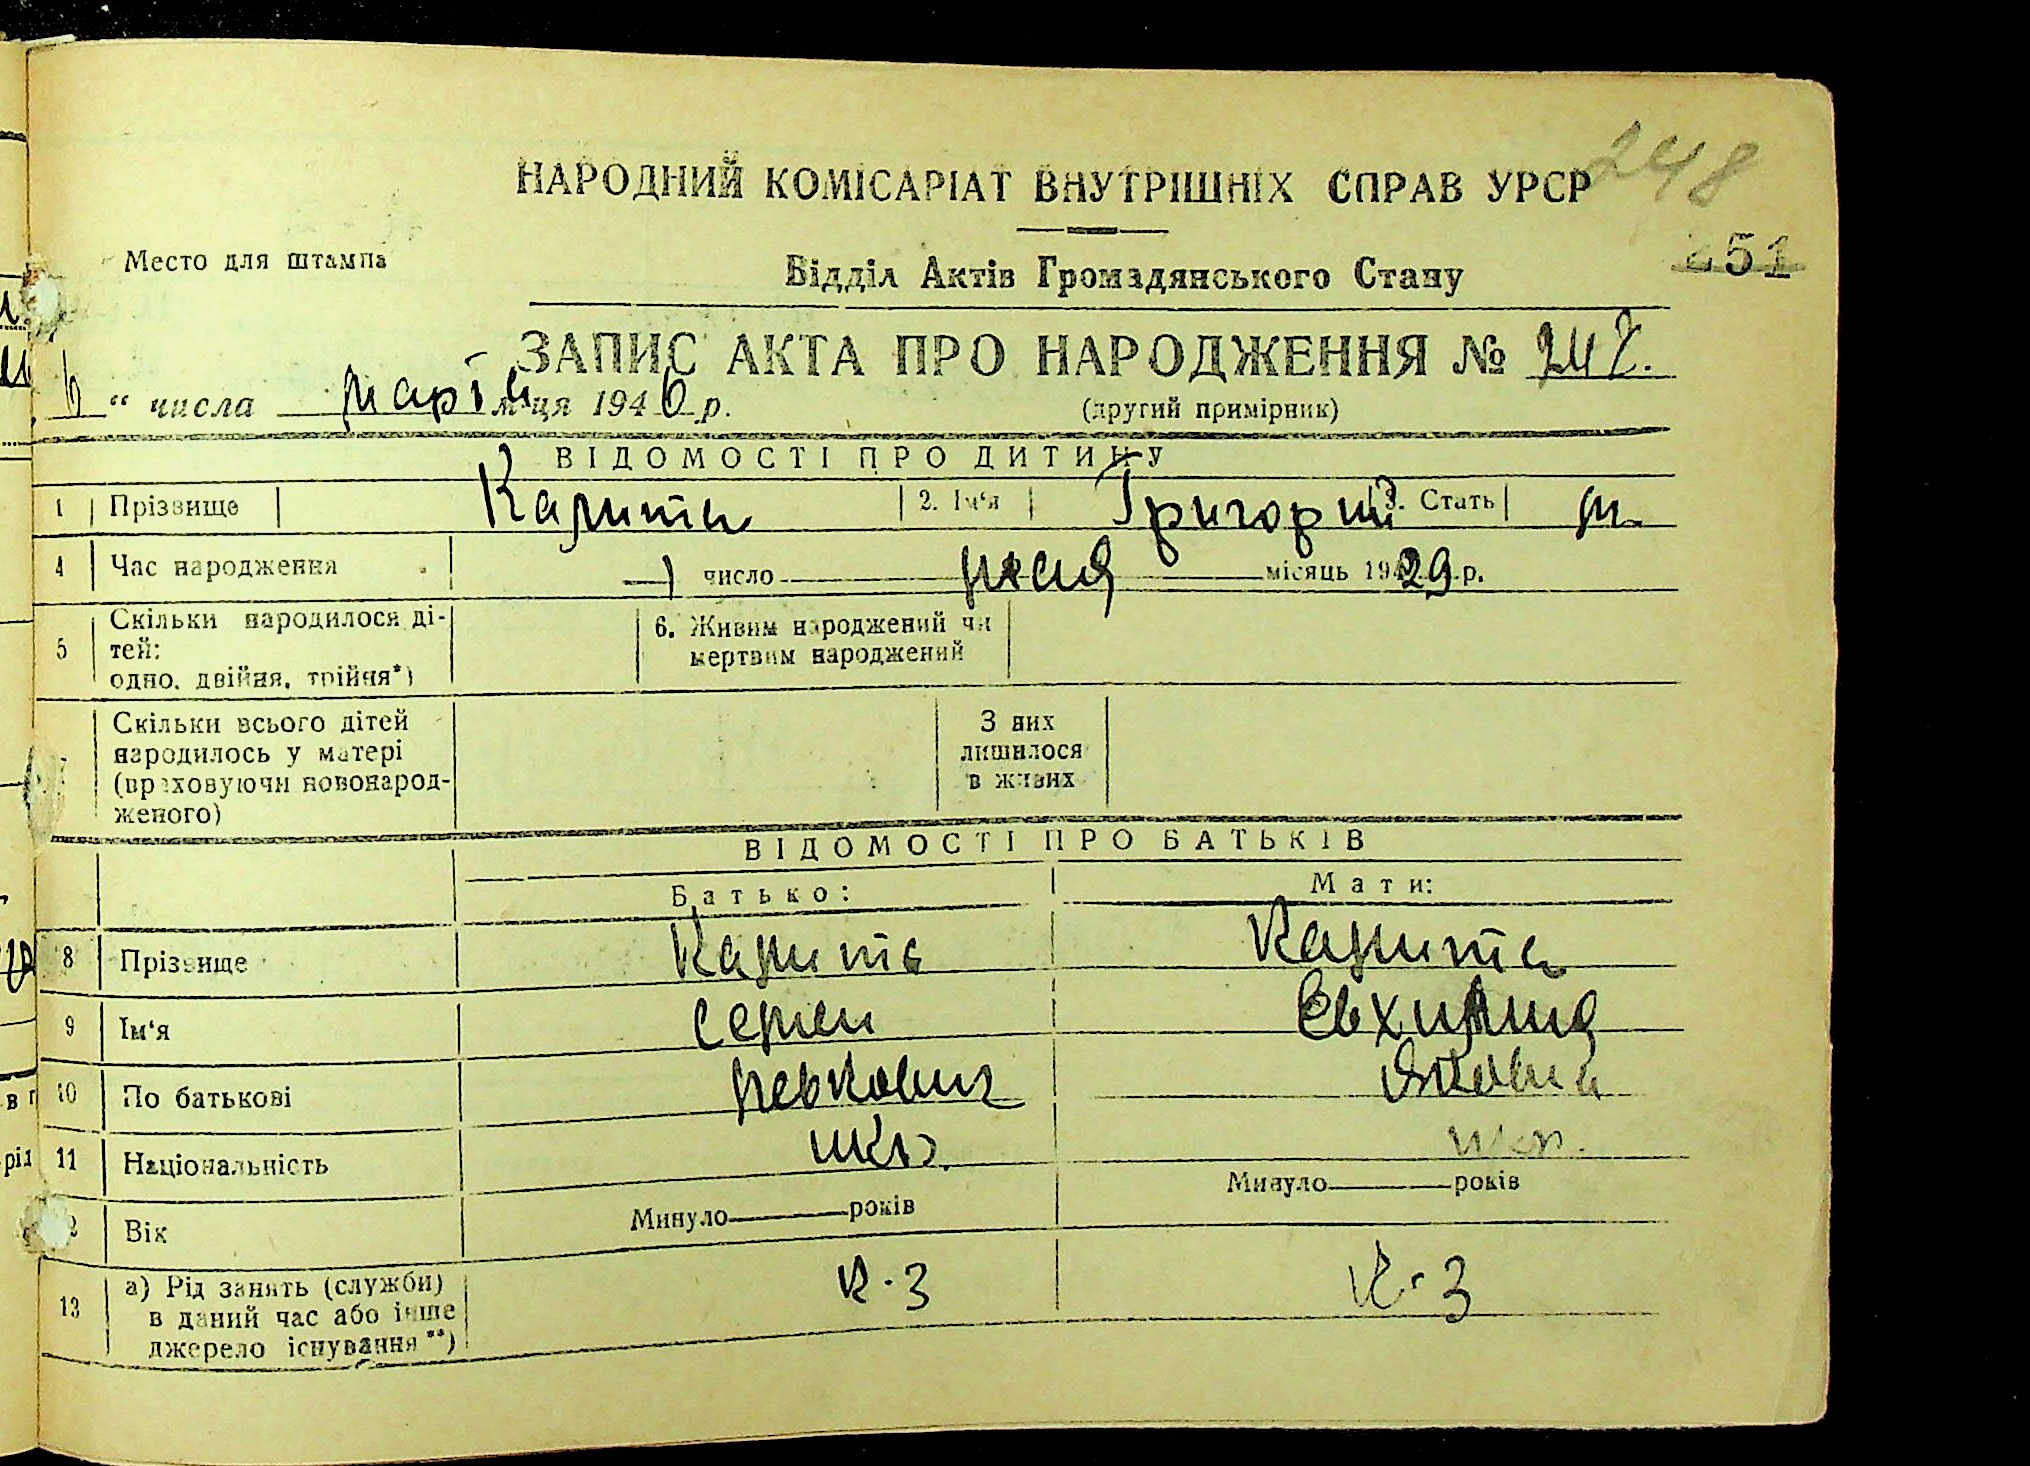 248
НАРОДНИЙ КОМІСАРІАТ ВНУТРІШНІХ СПРАВ УРСР
251
Место для штампа
Відділ Актів Громадянського Стану
ЗАПИС АКТА ПРО НАРОДЖЕННЯ № 247.
6 “ числа марта м-ця 1946 р.
(другий примірник)
ВІДОМОСТІ ПРО ДИТИНУ
1 Прізвище Калита 2. Ім‘я Григорий 3. Стать м.
4 Час народження 1 число мая місяць 1929 р.
5 Скільки народилося ді-
тей:
одно, двійня, трійня*)
6. Живим народжений чи
мертвим народжений
7 Скільки всього дітей
народилось у матері
(враховуючи новонарод-
женого)
З них
лишилося
в живих
ВІДОМОСТІ ПРО БАТЬКІВ
Батько: Мати:
8 Прізвище Калита Калита
9 Ім‘я Сергей Евхимия
10 По батькові Левкович Яковл
11 Національність укр. укр.
12 Вік Минуло років Минуло років
13 а) Рід занять (служби)
в даний час або інше
джерело існування**)
К-З К-З